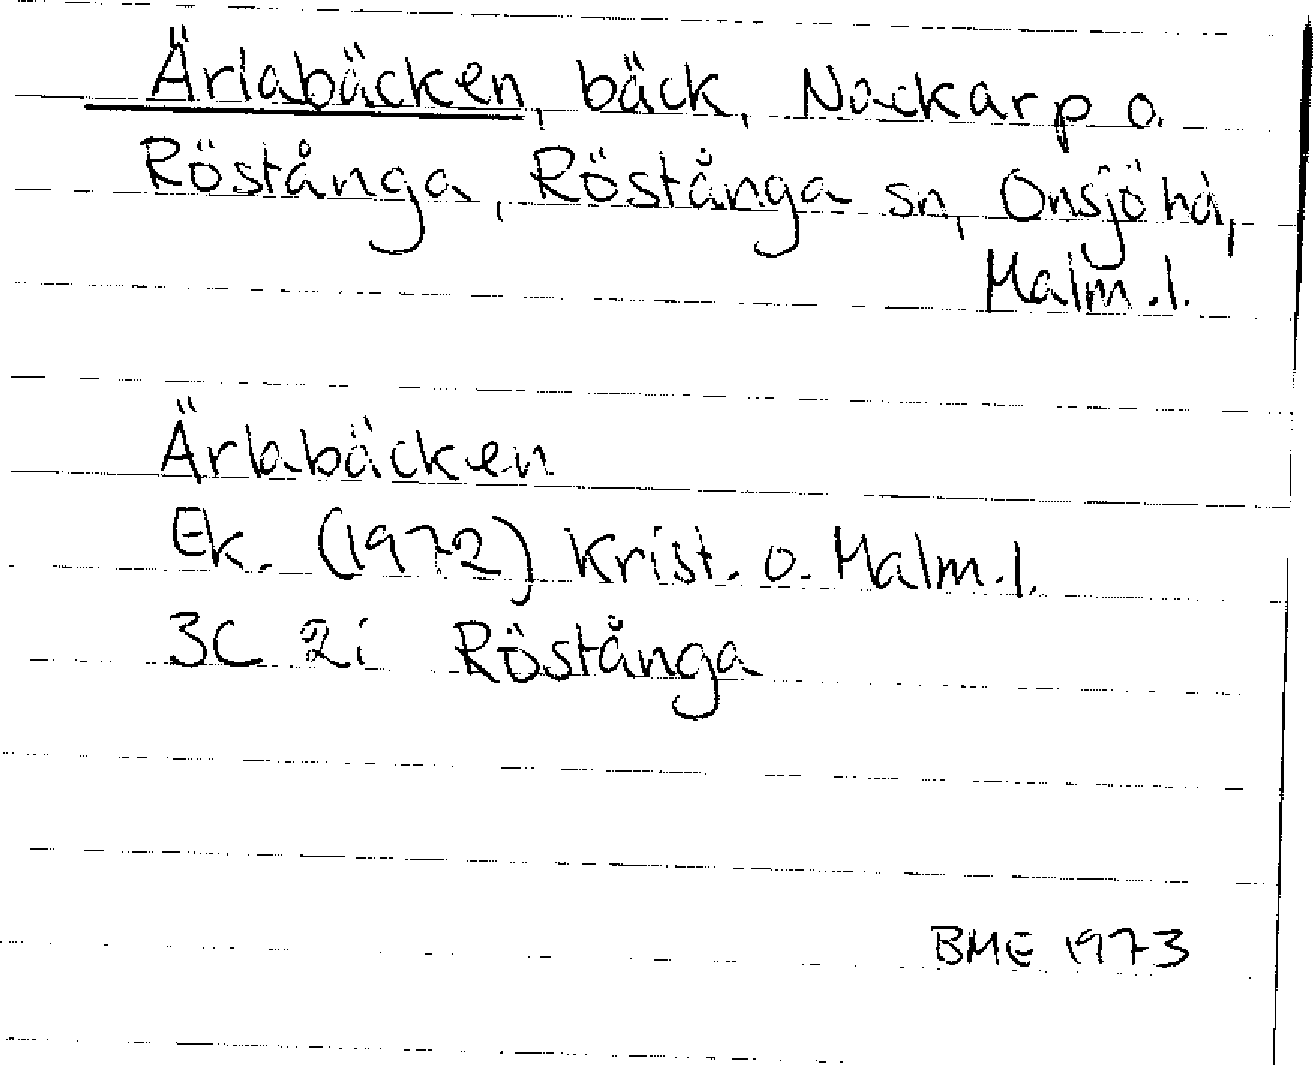 Ärlabäcken, bäck, Nackarp o.
Röstånga, Röstånga sn, Onsjö hd,
Malm.l.
Ärlabäcken
Ek. (1972) Krist. o. Malm.l.
3C 2i Röstånga
BME 1973